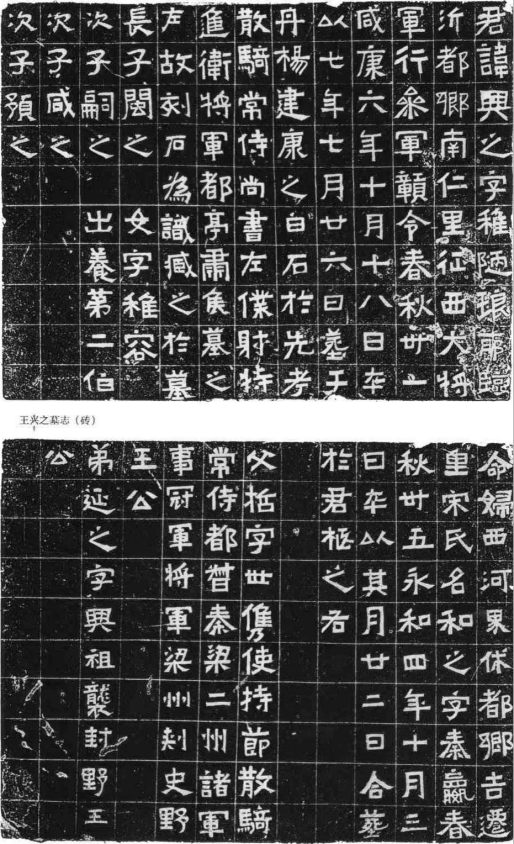 君諱興之字稚陋琅耶臨
沂都鄉南仁里征西大將
軍行參軍贛令春秋卅一
咸康六年十月十八日卒
以七年七月廿六日葬于
丹楊建康之白石於先考
散騎常侍尚書左僕射特
進衛將軍都亭肅侯墓之
左故刻石為識臧之於墓
長子閩之 女字稚容
次子嗣之 出養第二伯
次子咸之
次子預之
王兴之墓志（砖）
命婦西河界休都鄉吉遷
里宋氏名和之字秦嬴春
秋卅五永和四年十月三
日卒以其月廿二日合葬
於君柩之右
父哲字世儁使持節散騎
常侍都督秦梁二州諸軍
事冠軍將軍梁州刺史野
王公
弟延之字興祖襲封野王
公